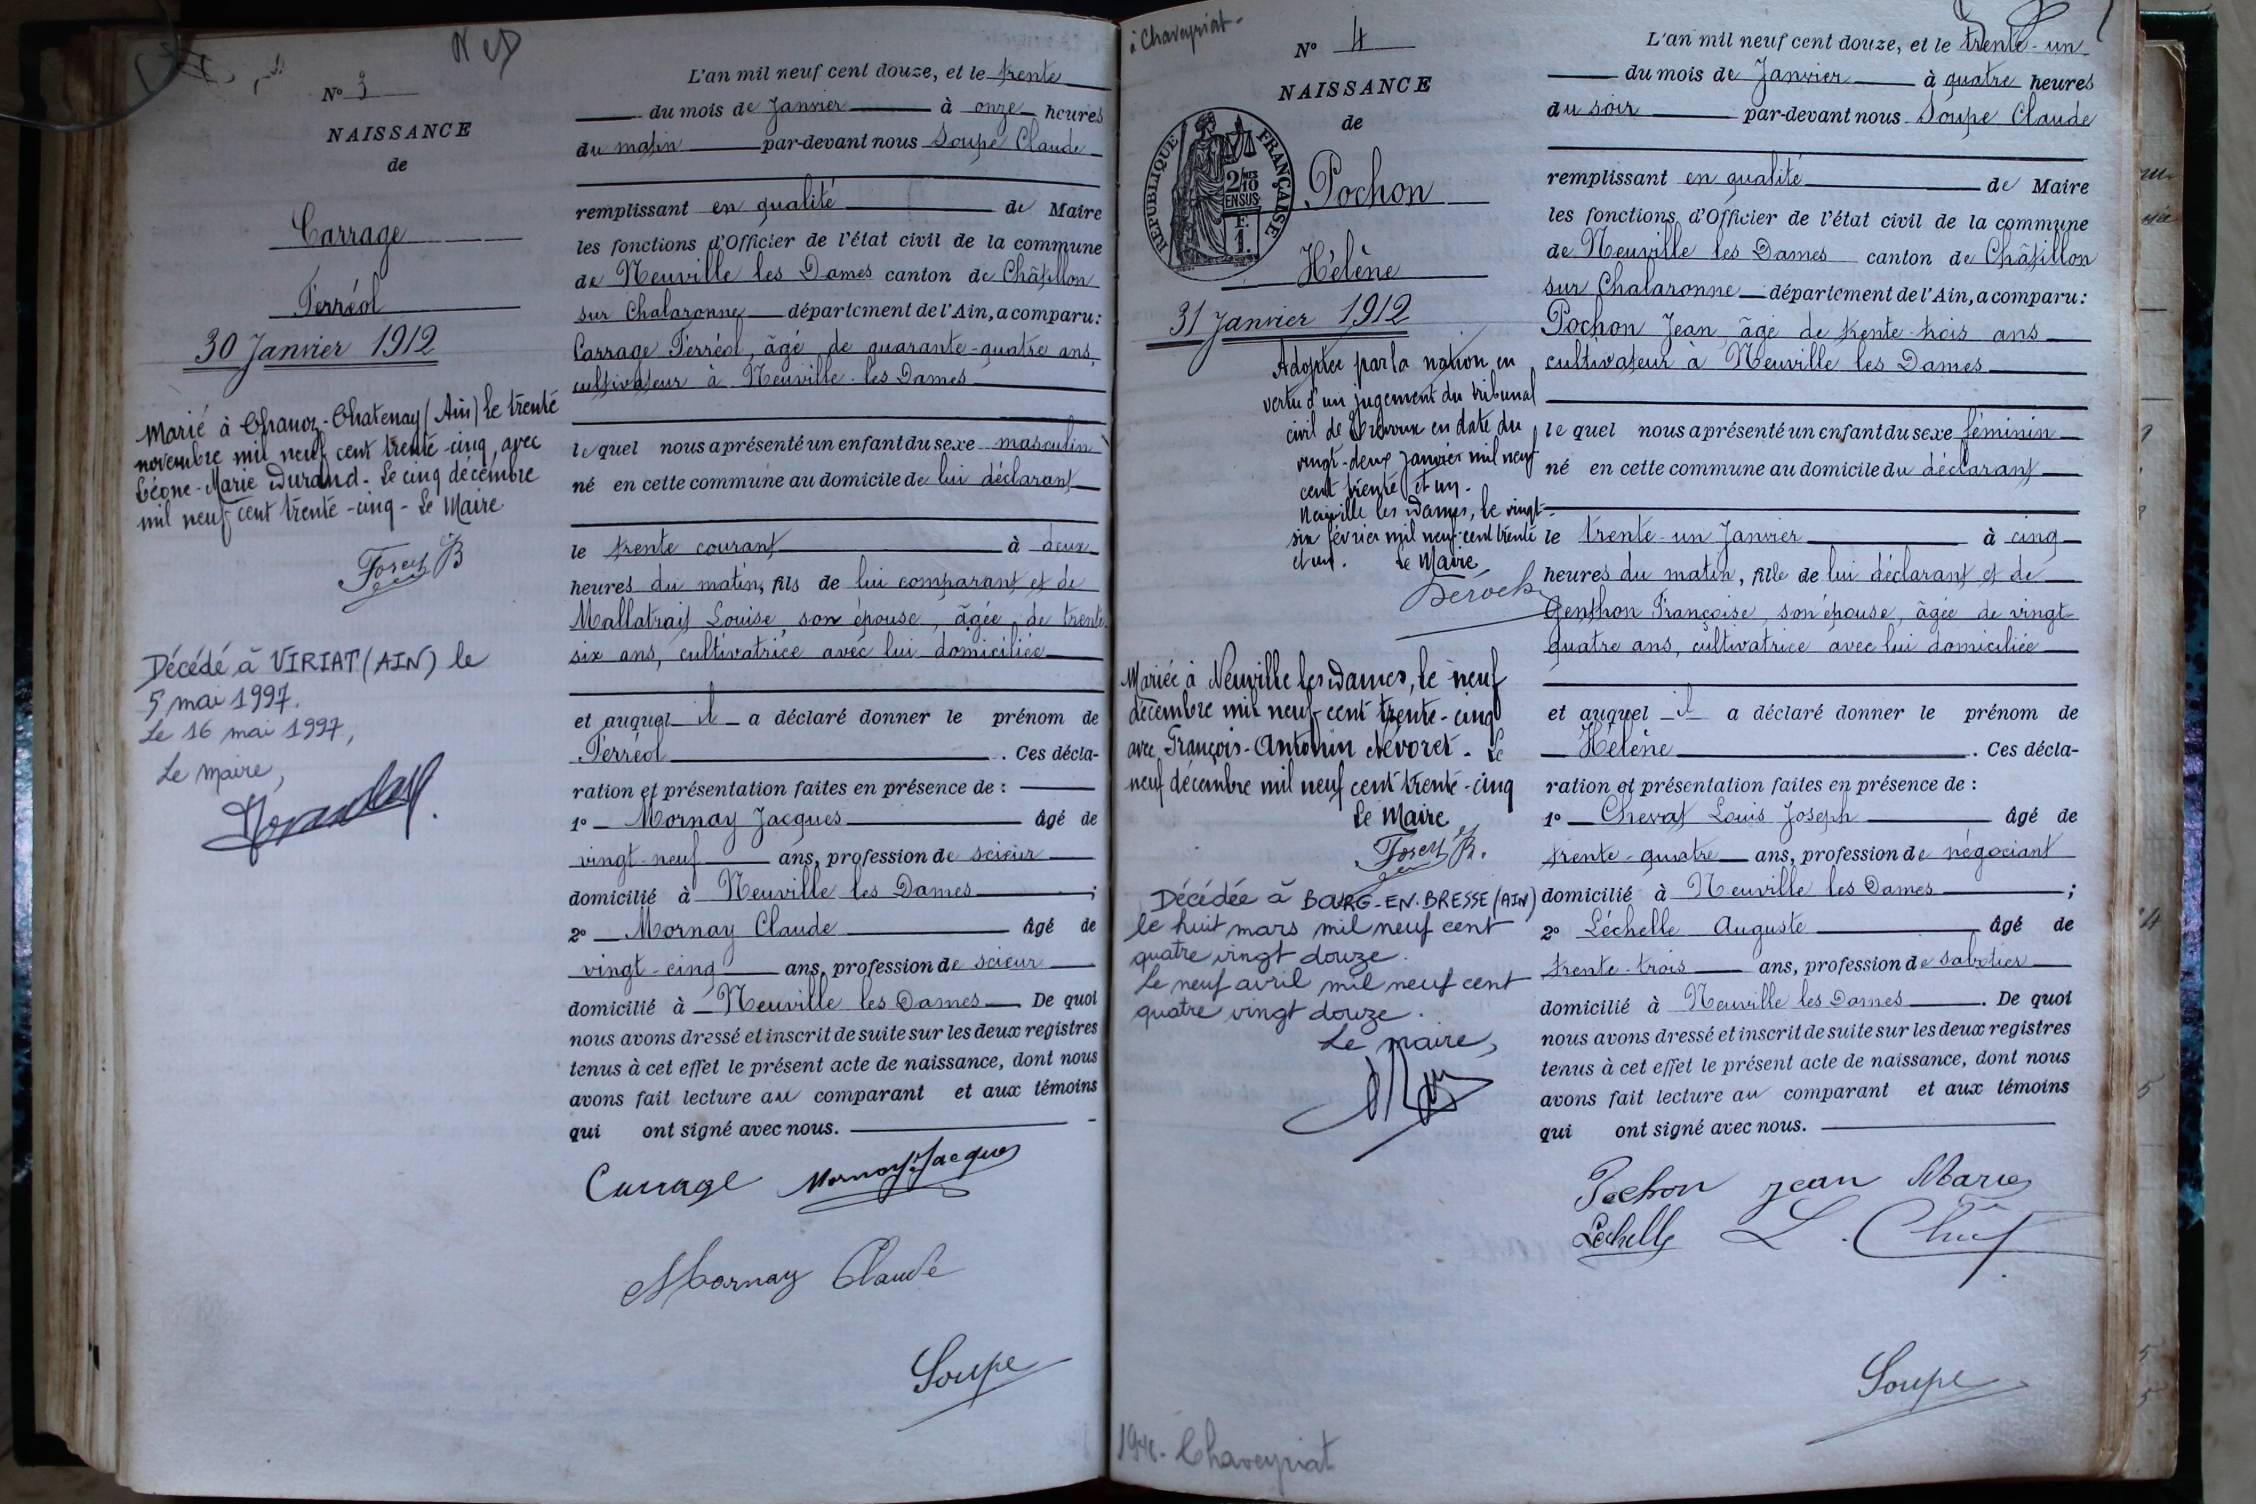 N° 3
NAISSANCE
de
Carrage
Ferréol
30 Janvier 1912
Marié à Chanoz-Chatenay (Ain) le trente
novembre mil neuf cent trente-cinq, avec
Léone-Marie Durand. Le cinq décembre
mil neuf cent trente-cinq - Le Maire
Décédé à VIRIAT (AIN) le
5 mai 1997.
Le 16 mai 1997,
Le maire,
L'an mil neuf cent douze, et le trente
du mois de Janvier à onze heures
du matin par-devant nous Soupe Claude
remplissant en qualité de Maire
les fonctions d'Officier de l'état civil de la commune
de Neuville les Dames canton de Châtillon
sur Chalaronne département de l'Ain, a comparu:
Carrage Ferréol, âgé de quarante-quatre ans,
cultivateur à Neuville les Dames
lequel nous a présenté un enfant du sexe masculin
né en cette commune au domicile de lui déclarant
le trente courant à deux
heures du matin, fils de lui comparant et de
Mallatrait Louise, son épouse, âgée de trente
six ans, cultivatrice avec lui domiciliée
et auquel il a déclaré donner le prénom de
Ferréol. Ces décla-
ration et présentation faites en présence de :
1° Mornay Jacques âgé de
vingt-neuf ans, profession de scieur
domicilié à Neuville les Dames ;
2° Mornay Claude âgé de
vingt-cinq ans, profession de scieur
domicilié à Neuville les Dames De quoi
nous avons dressé et inscrit de suite sur les deux registres
tenus à cet effet le présent acte de naissance, dont nous
avons fait lecture au comparant et aux témoins
qui ont signé avec nous.
Carrage Mornay Jacques
Mornay Claude
Soupe
à Chaveyriat
N° 4
NAISSANCE
de
REPUBLIQUE FRANÇAISE
2/10
EN SUS
F.
1.
Pochon
Hélène
31 Janvier 1912
Adoptée par la nation en
vertu d'un jugement du tribunal
civil de Trévoux en date du
vingt-deux janvier mil neuf
cent trente et un.
Neuville les Dames, le vingt-
six février mil neuf cent trente
et un. Le Maire
Mariée à Neuville les Dames, le neuf
décembre mil neuf cent trente-cinq
avec François-Antonin Névoret. Le
neuf décembre mil neuf cent trente-cinq
Le Maire
Décédée à BOURG-EN-BRESSE (AIN)
le huit mars mil neuf cent
quatre vingt douze.
Le neuf avril mil neuf cent
quatre vingt douze.
Le maire,
Chaveyriat
L'an mil neuf cent douze, et le trente-un
du mois de Janvier à quatre heures
du soir par-devant nous Soupe Claude
remplissant en qualité de Maire
les fonctions d'Officier de l'état civil de la commune
de Neuville les Dames canton de Châtillon
sur Chalaronne département de l'Ain, a comparu:
Pochon Jean, âgé de trente-trois ans
cultivateur à Neuville les Dames
lequel nous a présenté un enfant du sexe féminin
né en cette commune au domicile du déclarant
le trente-un Janvier à cinq
heures du matin, fille de lui déclarant et de
Genthon Françoise, son épouse, âgée de vingt
quatre ans, cultivatrice avec lui domiciliée
et auquel il a déclaré donner le prénom de
Hélène. Ces décla-
ration et présentation faites en présence de :
1° Chevat Louis Joseph âgé de
trente-quatre ans, profession de négociant
domicilié à Neuville les Dames ;
2° Léchelle Auguste âgé de
trente-trois ans, profession de sabotier
domicilié à Neuville les Dames. De quoi
nous avons dressé et inscrit de suite sur les deux registres
tenus à cet effet le présent acte de naissance, dont nous
avons fait lecture au comparant et aux témoins
qui ont signé avec nous.
Pochon Jean Marie
Lechelle L.
Soupe